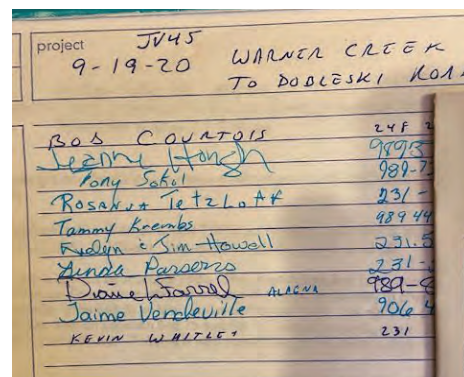 project JV45
9-19-20 WARNER CREEK
TO DOBLESKI ROA
BOB COURTOIS 248 2
Jeanne Hough 9895
Tony Sokol 989-7
ROSANNA TetzLoff 231-
Tammy Krembs 989 44
Evelyn & Jim Howell 231.5
Linda Parsons 231-
Diane Farrel ALAGNA 989-8
Jaime Vendeville 906 4
KEVIN WHITLEY 231